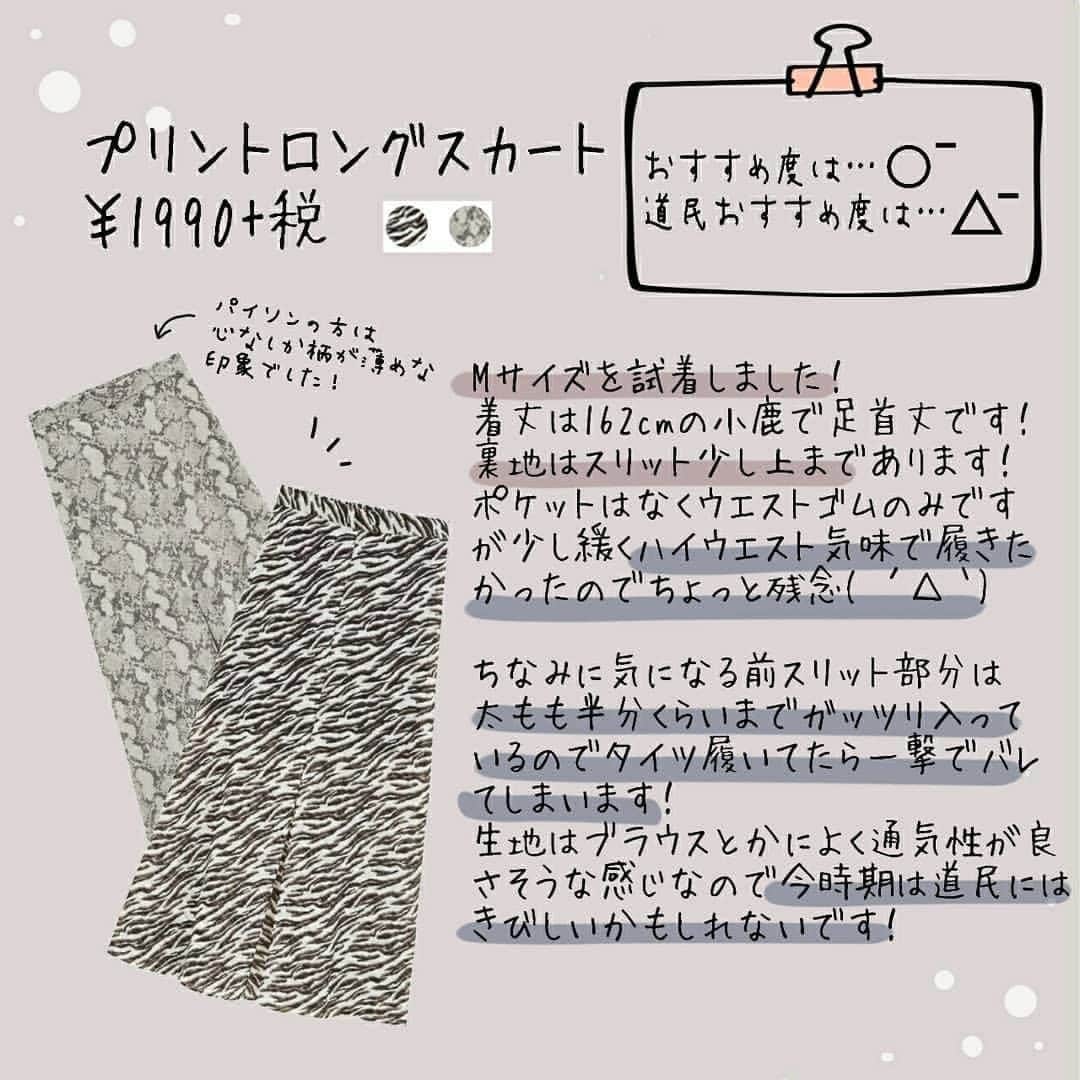 プリントロングスカート
¥1990+税
おすすめ度は…○⁻
道民おすすめ度は…△⁻
パイソンの方は
心なしか柄が薄めな
印象でした!
Mサイズを試着しました!
着丈は162cmの小鹿で足首丈です!
裏地はスリット少し上まであります!
ポケットはなくウエストゴムのみです
が少し緩くハイウエスト気味で履きた
かったのでちょっと残念( ´△`)
ちなみに気になる前スリット部分は
太もも半分くらいまでガッツリ入って
いるのでタイツ履いてたら一撃でバレ
てしまいます!
生地はブラウスとかによく通気性が良
さそうな感じなので今時期は道民には
きびしいかもしれないです!